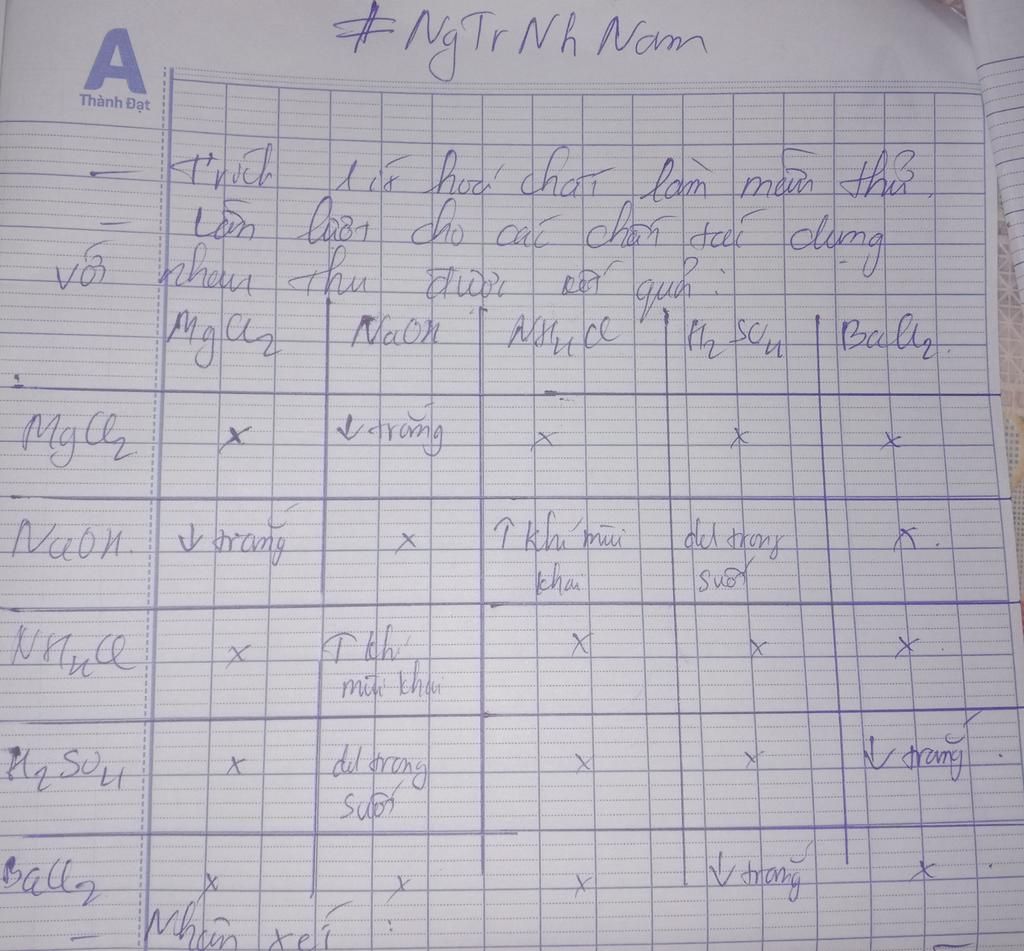 #NgTrNhNam
A
Thành Đạt
- Trích hoá chất làm mẫu thử.
- Lần lượt cho các chất tác dụng
với nhau thu được kết quả:
MgCl2 NaOH NH4Cl H2SO4 BaCl2.
MgCl2 x ↓ trắng x x x
NaOH. ↓ trắng x ↑ khí mùi khai dd trong suốt x.
NH4Cl x ↑ khí mùi khai x x x
H2SO4 x dd trong suốt x x ↓ trắng
BaCl2 x x x ↓ trắng x
- Nhận xét: